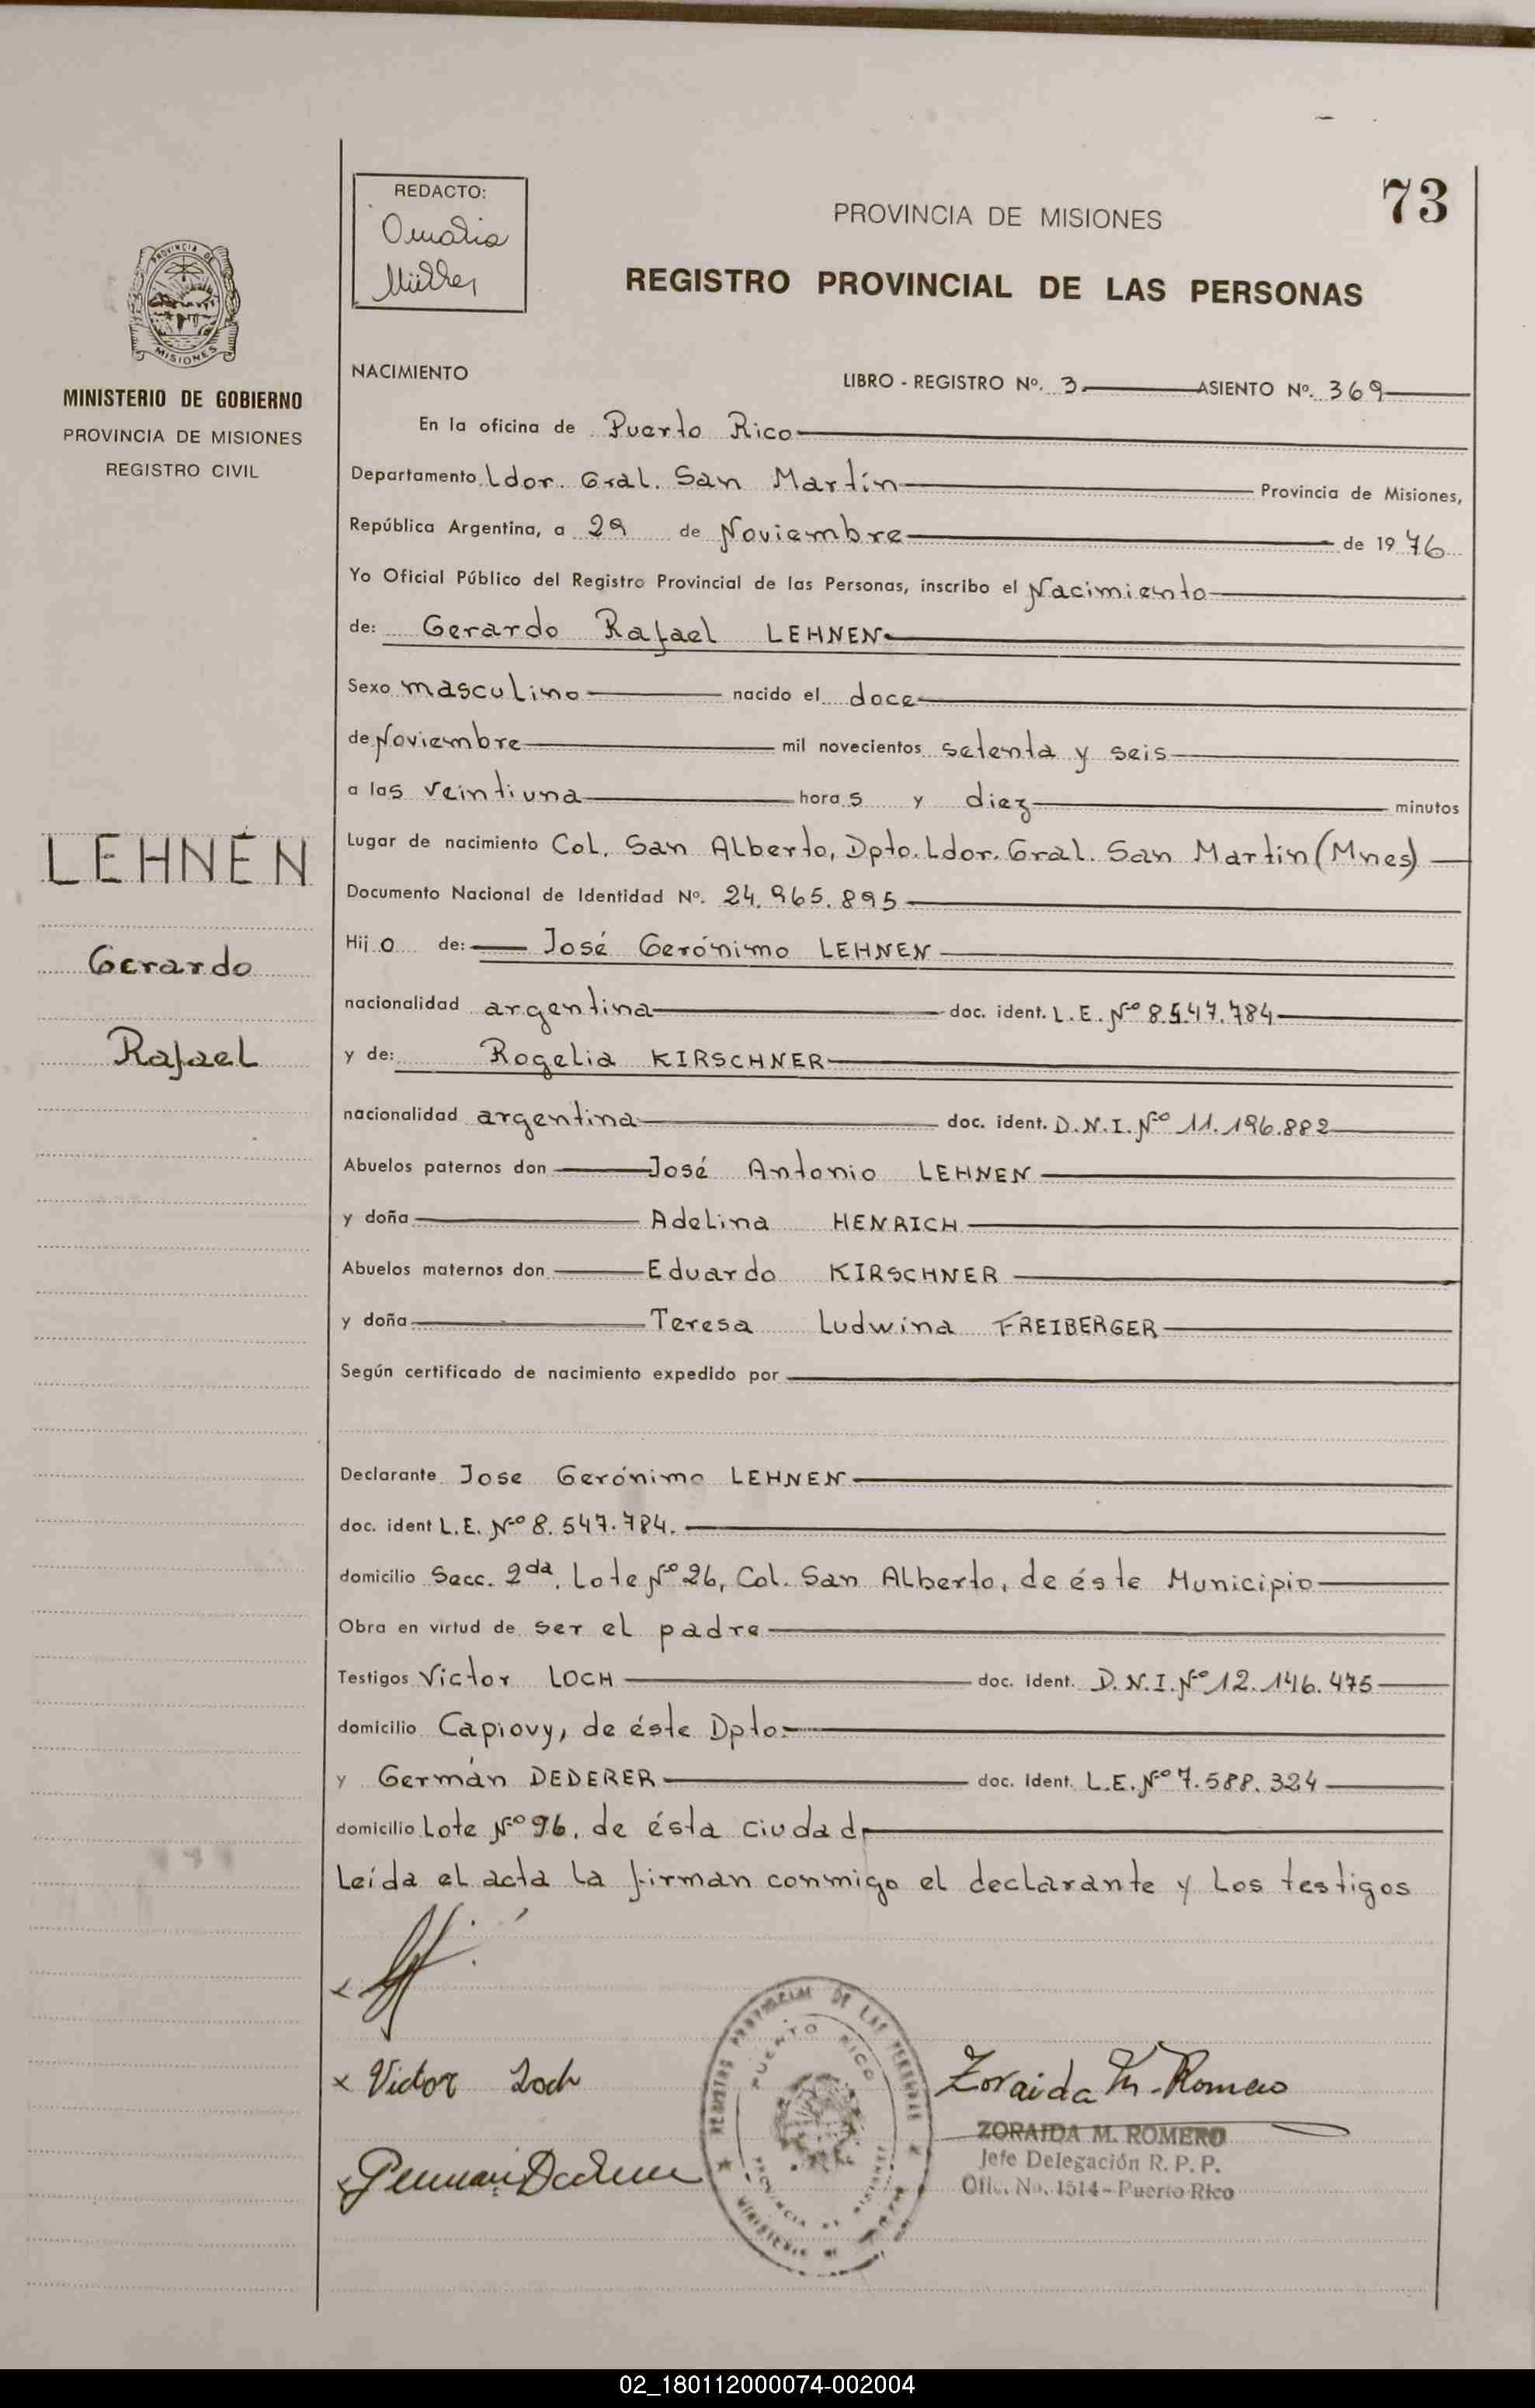 73
REDACTO:
Müller
PROVINCIA DE MISIONES
REGISTRO PROVINCIAL DE LAS PERSONAS
PROVINCIA DE
MISIONES
MINISTERIO DE GOBIERNO
PROVINCIA DE MISIONES
REGISTRO CIVIL
LEHNÉN
Gerardo
Rafael
NACIMIENTO LIBRO - REGISTRO Nº. 3 ASIENTO Nº. 369
En la oficina de Puerto Rico
Departamento Ldor. Gral. San Martín Provincia de Misiones,
República Argentina, a 29 de Noviembre de 1976
Yo Oficial Público del Registro Provincial de las Personas, inscribo el Nacimiento
de: Gerardo Rafael LEHNEN
Sexo masculino nacido el doce
de Noviembre mil novecientos setenta y seis
a las veintiuna horas y diez minutos
Lugar de nacimiento Col. San Alberto, Dpto. Ldor. Gral. San Martín (Mnes)
Documento Nacional de Identidad Nº. 24.965.895
Hijo de: José Gerónimo LEHNEN
nacionalidad argentina doc. ident. L.E. Nº 8.547.784
y de: Rogelia KIRSCHNER
nacionalidad argentina doc. ident. D.N.I. Nº 11.196.882
Abuelos paternos don José Antonio LEHNEN
y doña Adelina HENRICH
Abuelos maternos don Eduardo KIRSCHNER
y doña Teresa Ludwina FREIBERGER
Según certificado de nacimiento expedido por
Declarante Jose Gerónimo LEHNEN
doc. ident L.E. Nº 8.547.784.
domicilio Secc. 2da, Lote Nº 26, Col. San Alberto, de éste Municipio
Obra en virtud de ser el padre
Testigos Victor LOCH doc. Ident. D.N.I. Nº 12.146.475
domicilio Capiovy, de éste Dpto.
y Germán DEDERER doc. Ident. L.E. Nº 7.588.324
domicilio Lote Nº 96, de ésta ciudad,
Leída el acta la firman conmigo el declarante y los testigos
x
x Victor Loch
x German Dederer
REGISTRO PROVINCIAL DE LAS PERSONAS
PUERTO RICO
PROVINCIA DE MISIONES
MINISTERIO DE
Zoraida M. Romero
ZORAIDA M. ROMERO
Jefe Delegación R. P. P.
Ofic. No. 1514 - Puerto Rico
02_180112000074-002004